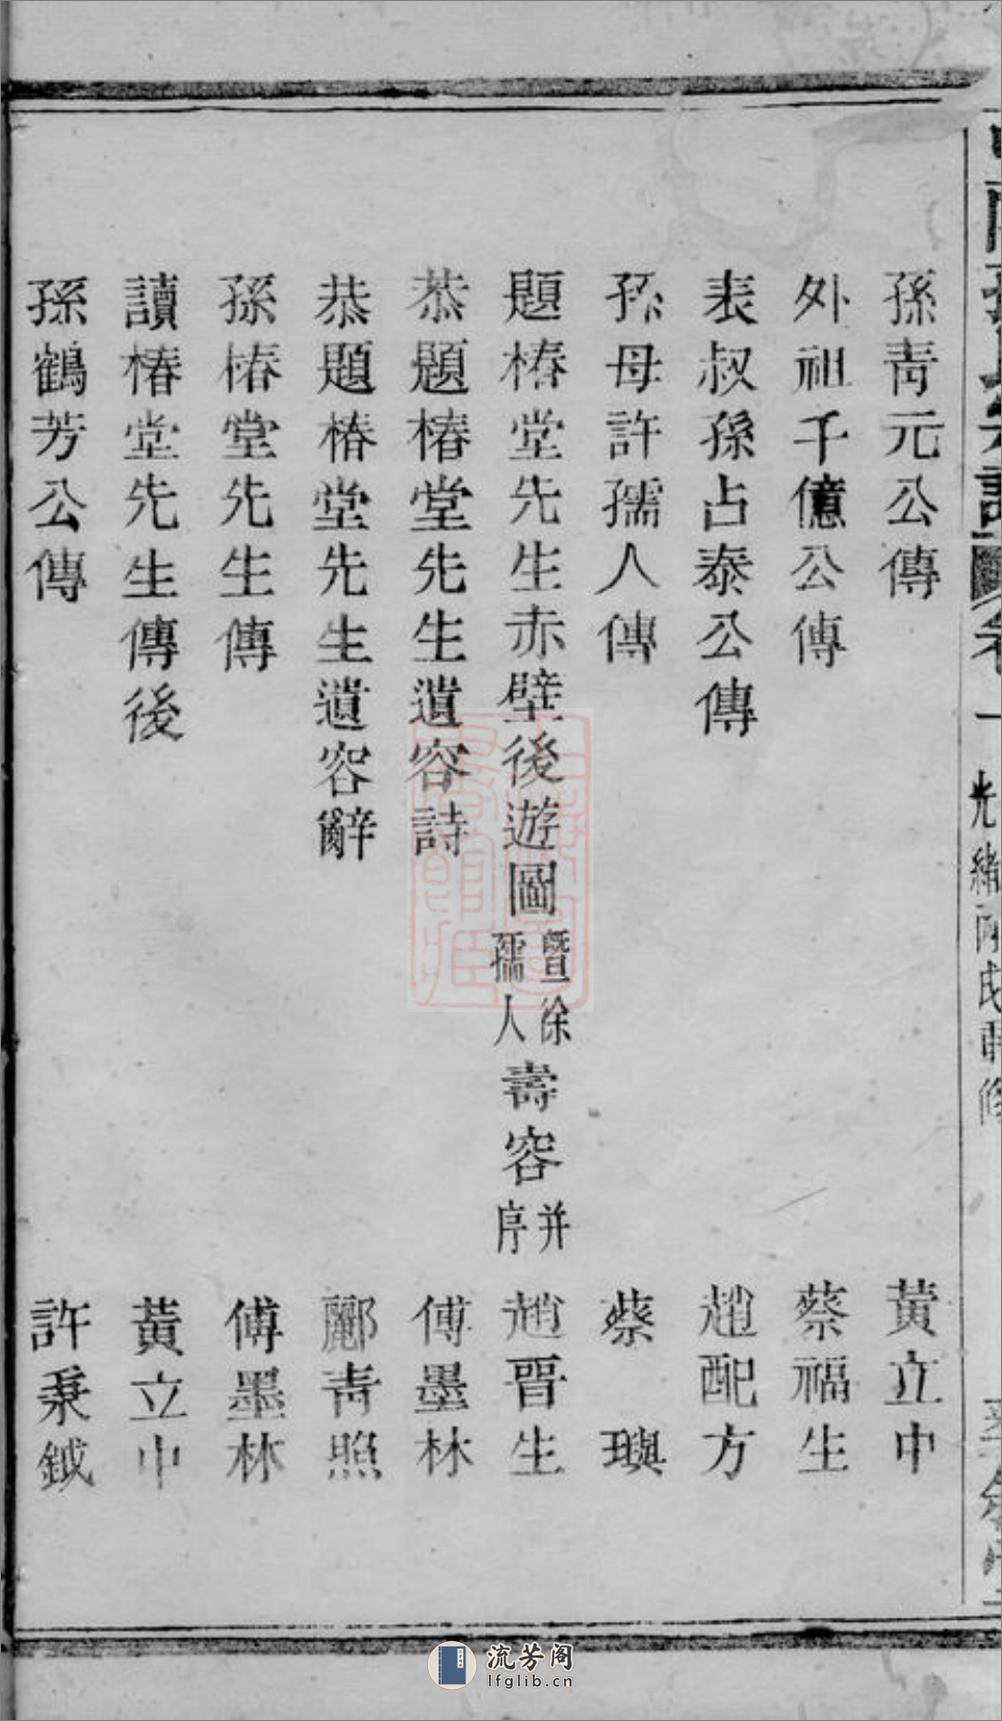 孫青元公傳 黃立中
外祖千億公傳 蔡福生
表叔孫占泰公傳 趙配方
孫母許孺人傳 蔡璵
題椿堂先生赤壁後遊圖暨徐孺人壽容并序 趙晋生
恭題椿堂先生遺容詩 傅墨林
恭題椿堂先生遺容辭 酈青照
孫椿堂先生傳 傅墨林
讀椿堂先生傳後 黃立中
孫鶴芳公傳 許秉鉞
光緒丙戌重修
流芳阁
lfglib.cn